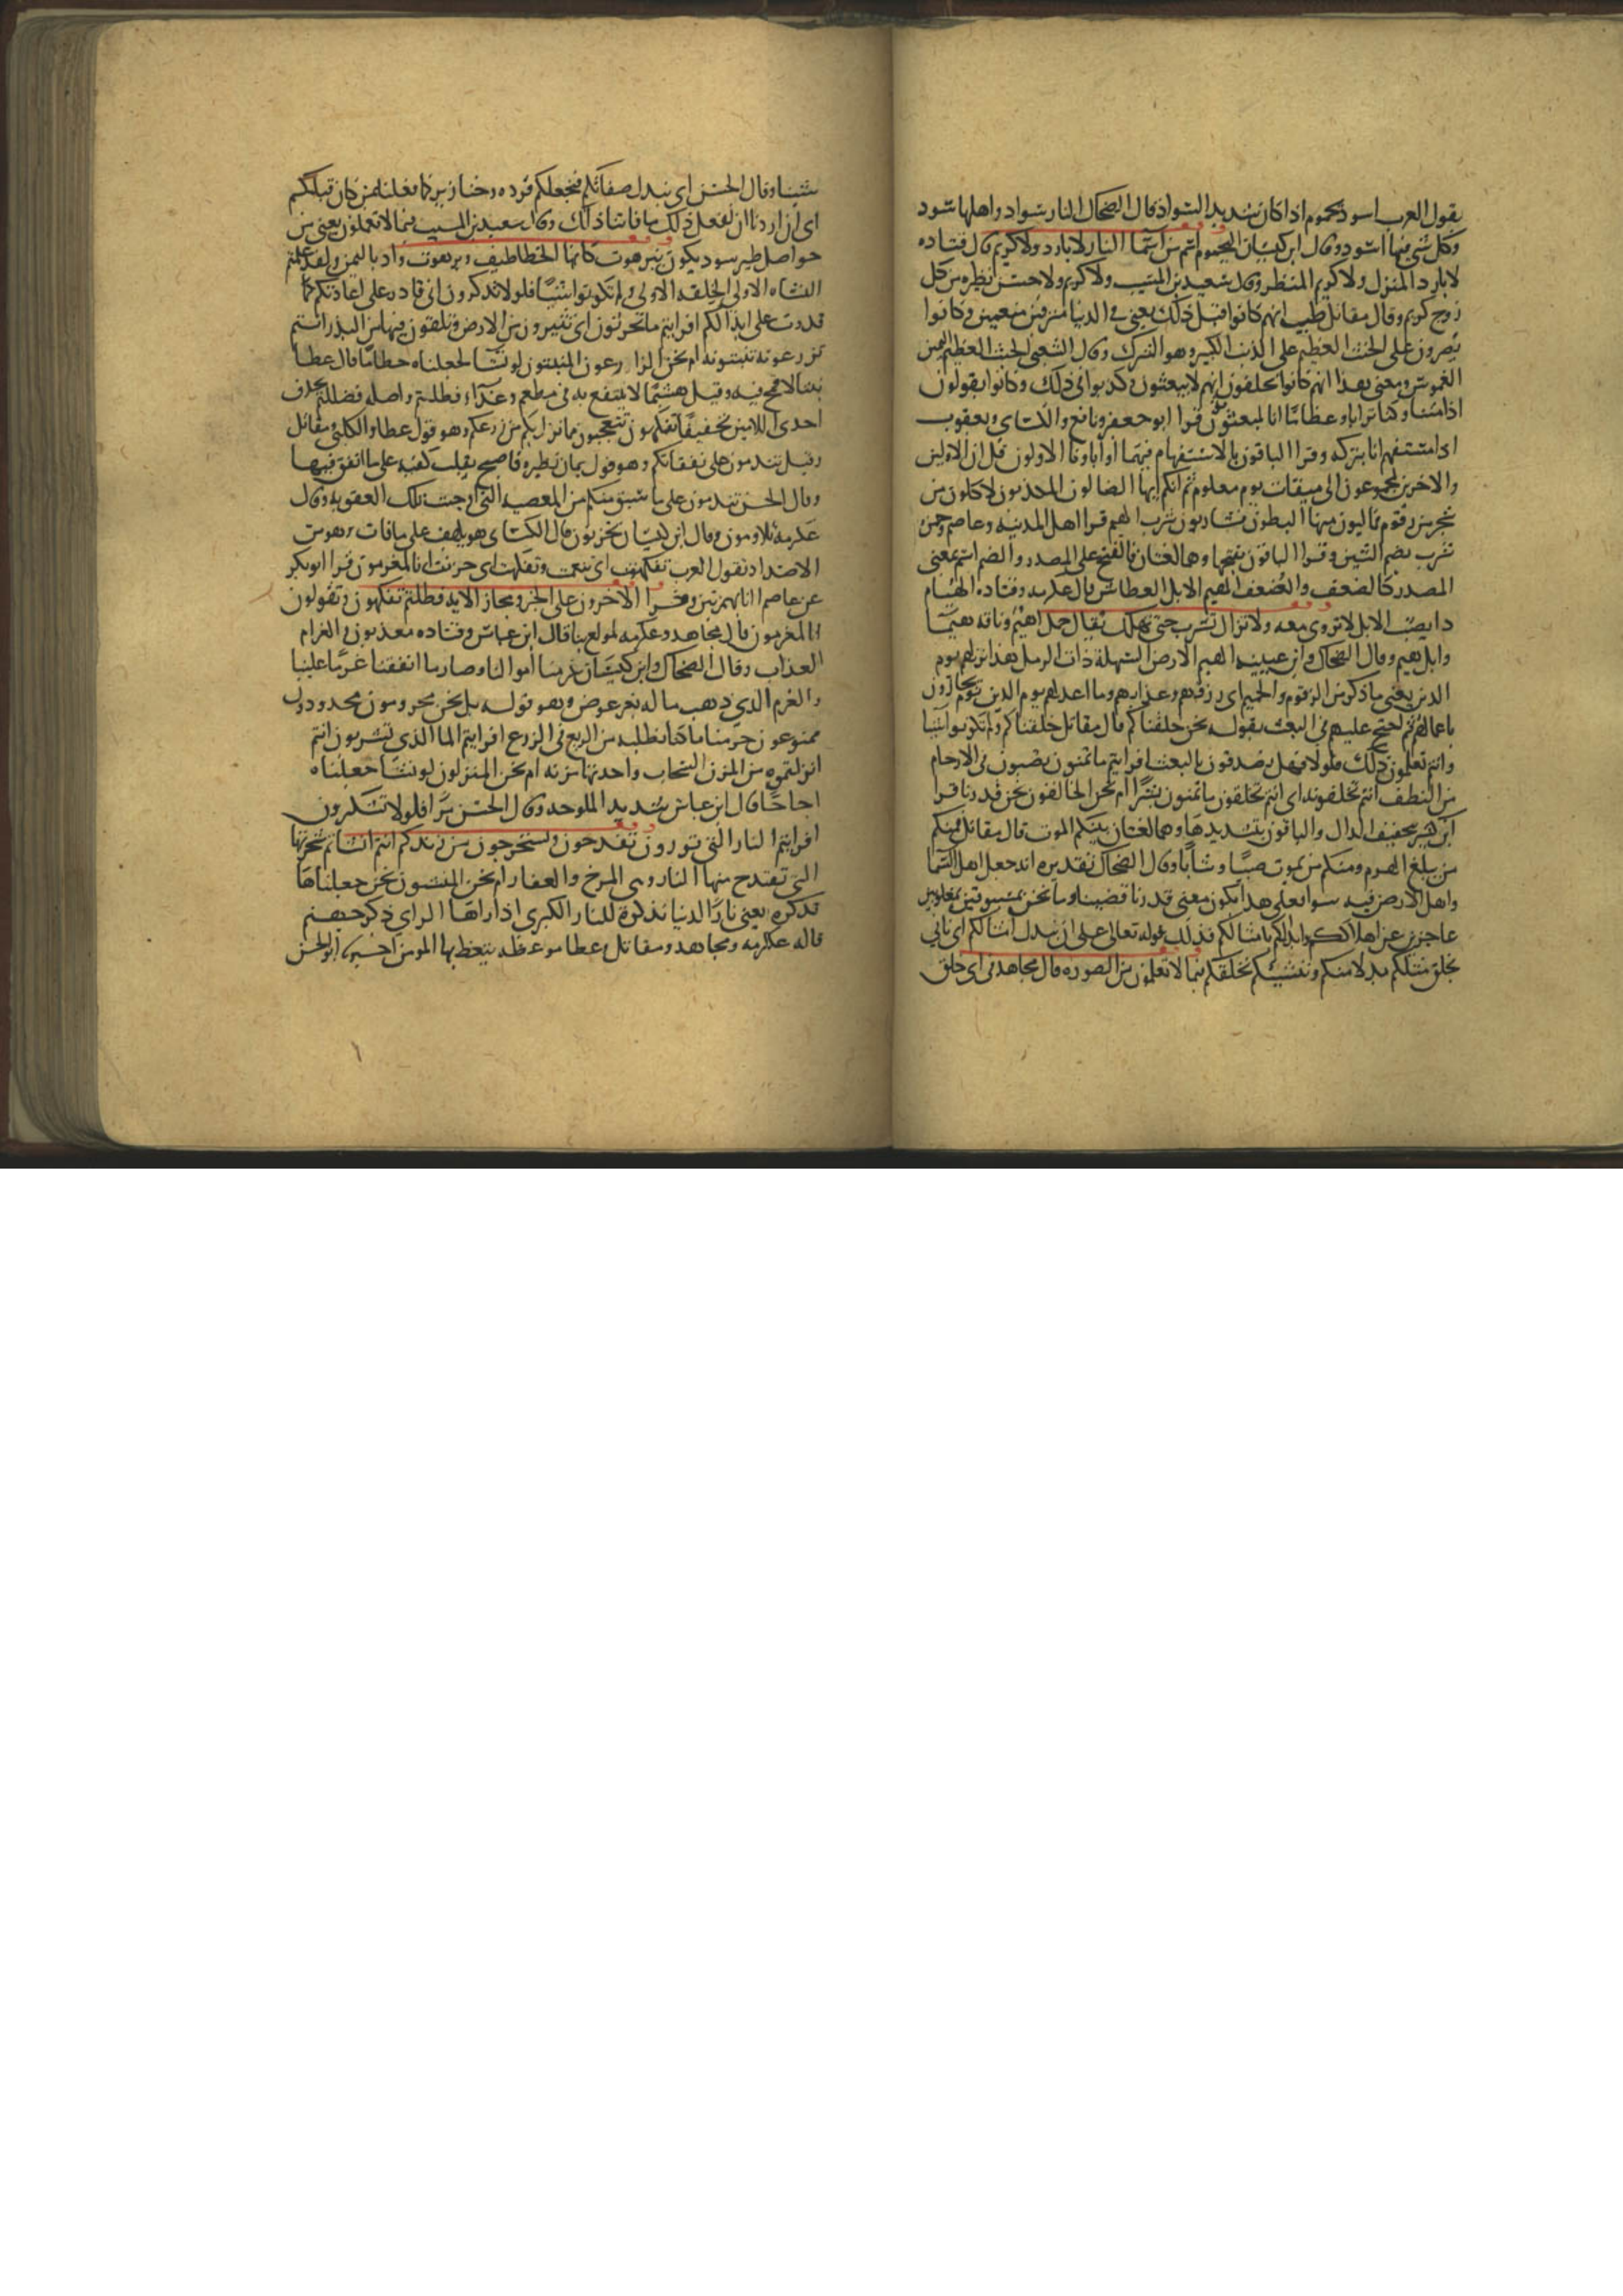 يقول العرب اسود يحموم اذا كان شديد السواد قال الضحاك النار سواد واهلها سود
وكل شي فيها اسود وقال ابن كيسان اليحموم اسم من اسما النار لا بارد ولا كريم قال قتاده
لا بارد المنزل ولا كريم المنظر وقال سعيد بن المسيب ولا كريم ولا حسن نظيره من كل
زوج كريم وقال مقاتل طيب انهم كانوا قبل ذلك يعني في الدنيا مترفين منعمين وكانوا
يصرون على الحنث العظيم على الذنب الكبير وهو الشرك وقال الشعبي الحنث العظيم اليمين
الغموس ومعنى هذا انهم كانوا يحلفون انهم لا يبعثون وكذبوا في ذلك وكانوا يقولون
اذا متنا وكنا ترابا وعظاما انا لمبعثون قرا ابو جعفر ونافع والكساي ويعقوب
اذا مستفهم انا بتركه وقرا الباقون بالاستفهام فيهما او اباونا الاولون قل ان الاولين
والاخرين لمجموعون الى ميقات يوم معلوم ثم انكم ايها الضالون المكذبون لاكلون من
شجر من زقوم فماليون منها البطون فشاربون شرب الهيم قرا اهل المدينه وعاصم وحمزه
شرب بضم الشين وقرا الباقون بفتحها وهما لغتان فالفتح على المصدر والضم اسم بمعنى
المصدر كالضعف والضعف الهيم الابل العطاش قال عكرمه وقتاده الهيام
دا يصيب الابل لا تروى معه ولا تزال تشرب حتى تهلك يقال جمل اهيم وناقه هيما
وابل هيم وقال الضحاك وابن عيينه الهيم الارض السهلة ذات الرمل هذا نزلهم يوم
الدين يعني ما ذكر من الزقوم والحميم اي رزقهم وغذاوهم وما اعد لهم يوم الدين يوم يجازون
باعمالهم ثم احتج عليهم في البعث بقوله نحن خلقناكم قال مقاتل خلقناكم ولم تكونوا شيا
وانتم تعلمون ذلك فلولا فهل تصدقون بالبعث افرايتم ما تمنون تصبون في الارحام
من النطف انتم تخلقونه اي انتم تخلقون ما تمنون بشرا ام نحن الخالقون نحن قدرنا قرا
ابن كثير بتخفيف الدال والباقون بتشديدها وهما لغتان بينكم الموت قال مقاتل فمنكم
من يبلغ الهرم ومنكم من يموت صبيا وشابا وقال الضحاك تقديره انه جعل اهل السما
واهل الارض فيه سوا فعلى هذا يكون معنى قدرنا قضينا وما نحن بمسبوقين بمغلوبين
عاجزين عن اهلاككم وابدالكم بامثالكم فذلك قوله تعالى على ان نبدل امثالكم اي ناتي
بخلق مثلكم بدلا منكم وننشيكم نخلقكم فيما لا تعلمون من الصوره قال مجاهد في اي خلق
شينا وقال الحسن اي نبدل صفاتكم فنجعلكم قرده وخنازير كما فعلنا بمن كان قبلكم
اي ان اردنا ان نفعل ذلك ما فاتنا ذلك وقال سعيد بن المسيب فيما لا تعلمون يعني من
حواصل طير سود يكون ببرهوت كانها الخطاطيف وبرهوت واد باليمن ولقد علمتم
النشاه الاولى الخلقه الاولى ولم تكونوا شيا فلولا تذكرون اني قادر على اعادتكم كما
قدرت على ابدائكم افرايتم ما تحرثون اي تثيرون من الارض وتلقون فيها من البذر اانتم
تزرعونه تنبتونه ام نحن الزارعون المنبتون لو نشا لجعلناه حطاما قال عطا
تبنا لا قمح فيه وقيل هشيما لا ينتفع به في مطعم وغذاء فظلتم واصله فظللتم بحذف
احدى اللامين تخفيفا تفكهون تتعجبون مما نزل بكم من زرعكم وهو قول عطا والكلبي ومقاتل
وقيل تندمون على نفقاتكم وهو قول يمان نظيره فاصبح يقلب كفيه على ما انفق فيها
وقال الحسن تندمون على ما سبق منكم من المعصيه التي اوجبت تلك العقوبه وقال
عكرمه تلاومون وقال ابن كيسان تحزنون قال الكساي هو تلهف على ما فات وهو من
الاضداد تقول العرب تفكهت اي تنعمت وتفكهت اي حزنت انا لمغرمون قرا ابو بكر
عن عاصم اانا بهمزتين وقرا الاخرون على الخبر ومجاز الايه فظلتم تفكهون وتقولون
انا لمغرمون قال مجاهد وعكرمه لمولع بنا قال ابن عباس وقتاده معذبون والغرام
العذاب وقال الضحاك وابن كيسان غرمنا اموالنا وصار ما انفقنا غرما علينا
والمغرم الذي ذهب ماله بغير عوض وهو قوله بل نحن محرومون محدودون
ممنوعون حرمنا ما كنا نطلبه من الريع في الزرع افرايتم الما الذي تشربون اانتم
انزلتموه من المزن السحاب واحدتها مزنه ام نحن المنزلون لو نشا جعلناه
اجاجا قال ابن عباس شديد الملوحه وقال الحسن مرا فلولا تشكرون
افرايتم النار التي تورون تقدحون وتستخرجون من زندكم اانتم انشاتم شجرتها
التي تقتدح منها النار وهي المرخ والعفار ام نحن المنشون نحن جعلناها
تذكره يعني نار الدنيا تذكرة للنار الكبرى اذا راها الراي ذكر جهنم
قاله عكرمه ومجاهد ومقاتل عطا موعظه يتعظ بها المومن اخبرنا ابو الحسن